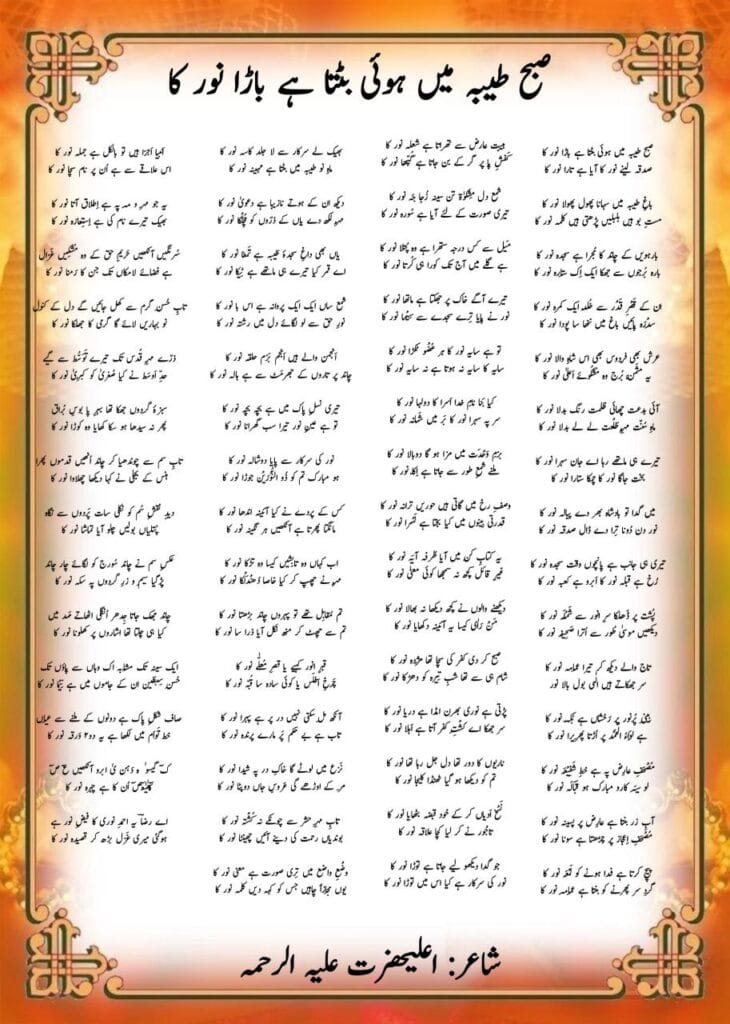 صبح طیبہ میں ہوئی بٹتا ہے باڑا نور کا
صبح طیبہ میں ہوئی بٹتا ہے باڑا نور کا
صدقہ لینے نور کا آیا ہے تارا نور کا
باغِ طیبہ میں سہانا پھول پھولا نور کا
مستِ بو ہیں بلبلیں پڑھتی ہیں کلمہ نور کا
بارہویں کے چاند کا مُجرا ہے سجدہ نور کا
بارہ بُرجوں سے جھکا ایک اِک ستارہ نور کا
ان کے قصرِ قَدْر سے خُلد ایک کمرہ نور کا
سِدرَہ پائیں باغ میں ننھا سا پودا نور کا
عرش بھی فردوس بھی اس شاہِ والا نور کا
یہ مُثَمَّن بُرج وہ مشکوئے اَعلیٰ نور کا
آئی بدعت چھائی ظلمت رنگ بدلا نور کا
ماہِ سنّت مہرِ طلعت لے لے بدلا نور کا
تیرے ہی ماتھے رہا اے جان سہرا نور کا
بخت جاگا نور کا چمکا ستارا نور کا
میں گدا تو بادشاہ بھر دے پیالہ نور کا
نور دن دُونا تِرا دے ڈال صدقہ نور کا
تیری ہی جانب ہے پانچوں وقت سجدہ نور کا
رُخ ہے قبلہ نور کا اَبرو ہے کعبہ نور کا
پُشت پر ڈھلکا سرِ انور سے شَملہ نور کا
دیکھیں موسیٰ طُور سے اُترا صَحِیفہ نور کا
تاج والے دیکھ کر تیرا عمامہ نور کا
سر جھکاتے ہیں الٰہی بول بالا نور کا
بینیِ پُرنور پر رَخشاں ہے بُکّہ نور کا
ہے لِوَاءُ الْحَمْد پر اُڑتا پھریرا نور کا
مُصْحَفِ عارض پہ ہے خطِ شَفِیْعَہ نور کا
لو سیہ کارو مبارک ہو قبالہ نور کا
آبِ زر بنتا ہے عارض پر پسینہ نور کا
مُصْحَفِ اِعجاز پر چڑھتا ہے سونا نور کا
پیچ کرتا ہے فدا ہونے کو لَمْعَہ نور کا
گردِ سر پھرنے کو بنتا ہے عمامہ نور کا
ہیبتِ عارض سے تھراتا ہے شعلہ نور کا
کَفشِ پا پر گر کے بن جاتا ہے گُپّھا نور کا
شمع دل مِشکوٰۃ تن سینہ زُجاجہ نور کا
تیری صورت کے لئے آیا ہے سُورہ نور کا
مَیل سے کس درجہ ستھرا ہے وہ پُتلا نور کا
ہے گلے میں آج تک کورا ہی کُرتا نور کا
تیرے آگے خاک پر جھکتا ہے ماتھا نور کا
نور نے پایا تِرے سجدے سے سیما نور کا
تو ہے سایہ نور کا ہر عُضْو ٹکڑا نور کا
سایہ کا سایہ نہ ہوتا ہے نہ سایہ نور کا
کیا بَنا نامِ خدا اَسرا کا دولہا نور کا
سر پہ سہرا نور کا بَر میں شَہانہ نور کا
بزمِ وَحْدت میں مزا ہو گا دوبالا نور کا
ملنے شمعِ طور سے جاتا ہے اِکّا نور کا
وصفِ رخ میں گاتی ہیں حوریں ترانہ نور کا
قدرتی بینوں میں کیا بجتا ہے لَہرا نور کا
یہ کتابِ کُن میں آیا طُرفہ آیَہ نور کا
غیرِ قائل کچھ نہ سمجھا کوئی معنٰی نور کا
دیکھنے والوں نے کچھ دیکھا نہ بھالا نور کا
مَنْ رَأٰی کیسا یہ آئینہ دکھایا نور کا
صبح کر دی کفر کی سچا تھا مژدہ نور کا
شام ہی سے تھا شبِ تِیرہ کو دھڑکا نور کا
پڑتی ہے نوری بھرن امڈا ہے دریا نور کا
سر جھکا اے کشتِ کفر آتا ہے اَہلا نور کا
ناریوں کا دَور تھا دل جل رہا تھا نور کا
تم کو دیکھا ہو گیا ٹھنڈا کلیجا نور کا
نَسْخِ اَدیاں کر کے خود قبضہ بٹھایا نور کا
تاجْوَر نے کر لیا کچا علاقہ نور کا
جو گدا دیکھو لیے جاتا ہے توڑا نور کا
نور کی سرکار ہے کیا اس میں توڑا نور کا
بھیک لے سرکار سے لا جلد کاسہ نور کا
ماہِ نو طیبہ میں بٹتا ہے مہینہ نور کا
دیکھ ان کے ہوتے نازیبا ہے دعویٰ نور کا
مہر لکھ دے یاں کے ذَرّوں کو مُچلکا نور کا
یاں بھی داغِ سجدۂ طیبہ ہے تَمْغا نور کا
اے قمر کیا تیرے ہی ماتھے ہے ٹِیکا نور کا
شمع ساں ایک ایک پروانہ ہے اس با نور کا
نورِ حق سے لو لگائے دل میں رشتہ نور کا
انجمن والے ہیں انجم بزم حلقہ نور کا
چاند پر تاروں کے جھرمٹ سے ہے ہالہ نور کا
تیری نسلِ پاک میں ہے بچہ بچہ نور کا
تو ہے عینِ نور تیرا سب گھرانا نور کا
نور کی سرکار سے پایا دوشالہ نور کا
ہو مبارک تم کو ذُو النُّوْرَیْن جوڑا نور کا
کس کے پردے نے کیا آئینہ اندھا نور کا
مانگتا پھرتا ہے آنکھیں ہر نگینہ نور کا
اب کہاں وہ تابِشیں کیسا وہ تڑکا نور کا
مہر نے چھپ کر کیا خاصا دُھندلکا نور کا
تم مقابل تھے تو پہروں چاند بڑھتا نور کا
تم سے چھٹ کر منھ نکل آیا ذرا سا نور کا
قبرِ انور کہیے یا قصرِ معلّٰے نور کا
چرخِ اطلس یا کوئی سادہ سا قُبّہ نور کا
آنکھ مل سکتی نہیں در پر ہے پہرا نور کا
تاب ہے بے حکم پَر مارے پرندہ نور کا
نَزع میں لوٹے گا خاکِ در پہ شیدا نور کا
مر کے اوڑھے گی عروسِ جاں دوپٹا نور کا
تابِ مہرِ حشر سے چونکے نہ کُشتہ نور کا
بوندیاں رحمت کی دینے آئیں چھینٹا نور کا
وضعِ واضع میں تری صورت ہے معنٰی نور کا
یوں مجازاً چاہیں جس کو کہہ دیں کلمہ نور کا
انبیا اَجزا ہیں تو بالکل ہے جملہ نور کا
اس علاقے سے ہے اُن پر نام سچا نور کا
یہ جو مہر و مہ پہ ہے اِطلاق آتا نور کا
بھیک تیرے نام کی ہے اِستعارَہ نور کا
سُرمگیں آنکھیں حَریمِ حق کے وہ مُشکیں غزال
ہے فضائے لامکاں تک جن کا رَمنا نور کا
تابِ حُسنِ گرم سے کھل جائیں گے دل کے کنول
نو بہاریں لائے گا گرمی کا جھلکا نور کا
ذرّے مہرِ قدس تک تیرے تَوَسُّط سے گئے
حدِّ اَوسَط نے کیا صُغریٰ کو کبریٰ نور کا
سبزۂ گردوں جھکا تھا بہرِ پا بوسِ بُراق
پھر نہ سیدھا ہو سکا کھایا وہ کوڑا نور کا
تابِ سم سے چوندھیا کر چاند اُنھیں قدموں پھرا
ہنس کے بجلی نے کہا دیکھا چھلاوا نور کا
دیدِ نقشِ سُم کو نکلی سات پَردوں سے نگاہ
پتلیاں بولیں چلو آیا تماشا نور کا
عکسِ سم نے چاند سورج کو لگائے چار چاند
پڑ گیا سیم و زرِ گردوں پہ سکہ نور کا
چاند جھک جاتا جدھر اُنگلی اٹھاتے مَہد میں
کیا ہی چلتا تھا اشاروں پر کھلونا نور کا
ایک سینہ تک مشابہ اک وہاں سے پاؤں تک
حُسنِ سِبطین ان کے جاموں میں ہے نِیما نور کا
صاف شکلِ پاک ہے دونوں کے ملنے سے عیاں
خطِ تَواَم میں لکھا ہے یہ دو۲ وَرقہ نور کا
کٓ گیسو ہٰ دہن یٰ ابرو آنکھیں عٓ صٓ
کٓھٰیٰعٓصٓ اُن کا ہے چہرہ نور کا
اے رضاؔ یہ احمدِ نوری کا فیضِ نور ہے
ہو گئی میری غزل بڑھ کر قصیدہ نور کا
شاعر: اعلیٰحضرت علیہ الرحمہ